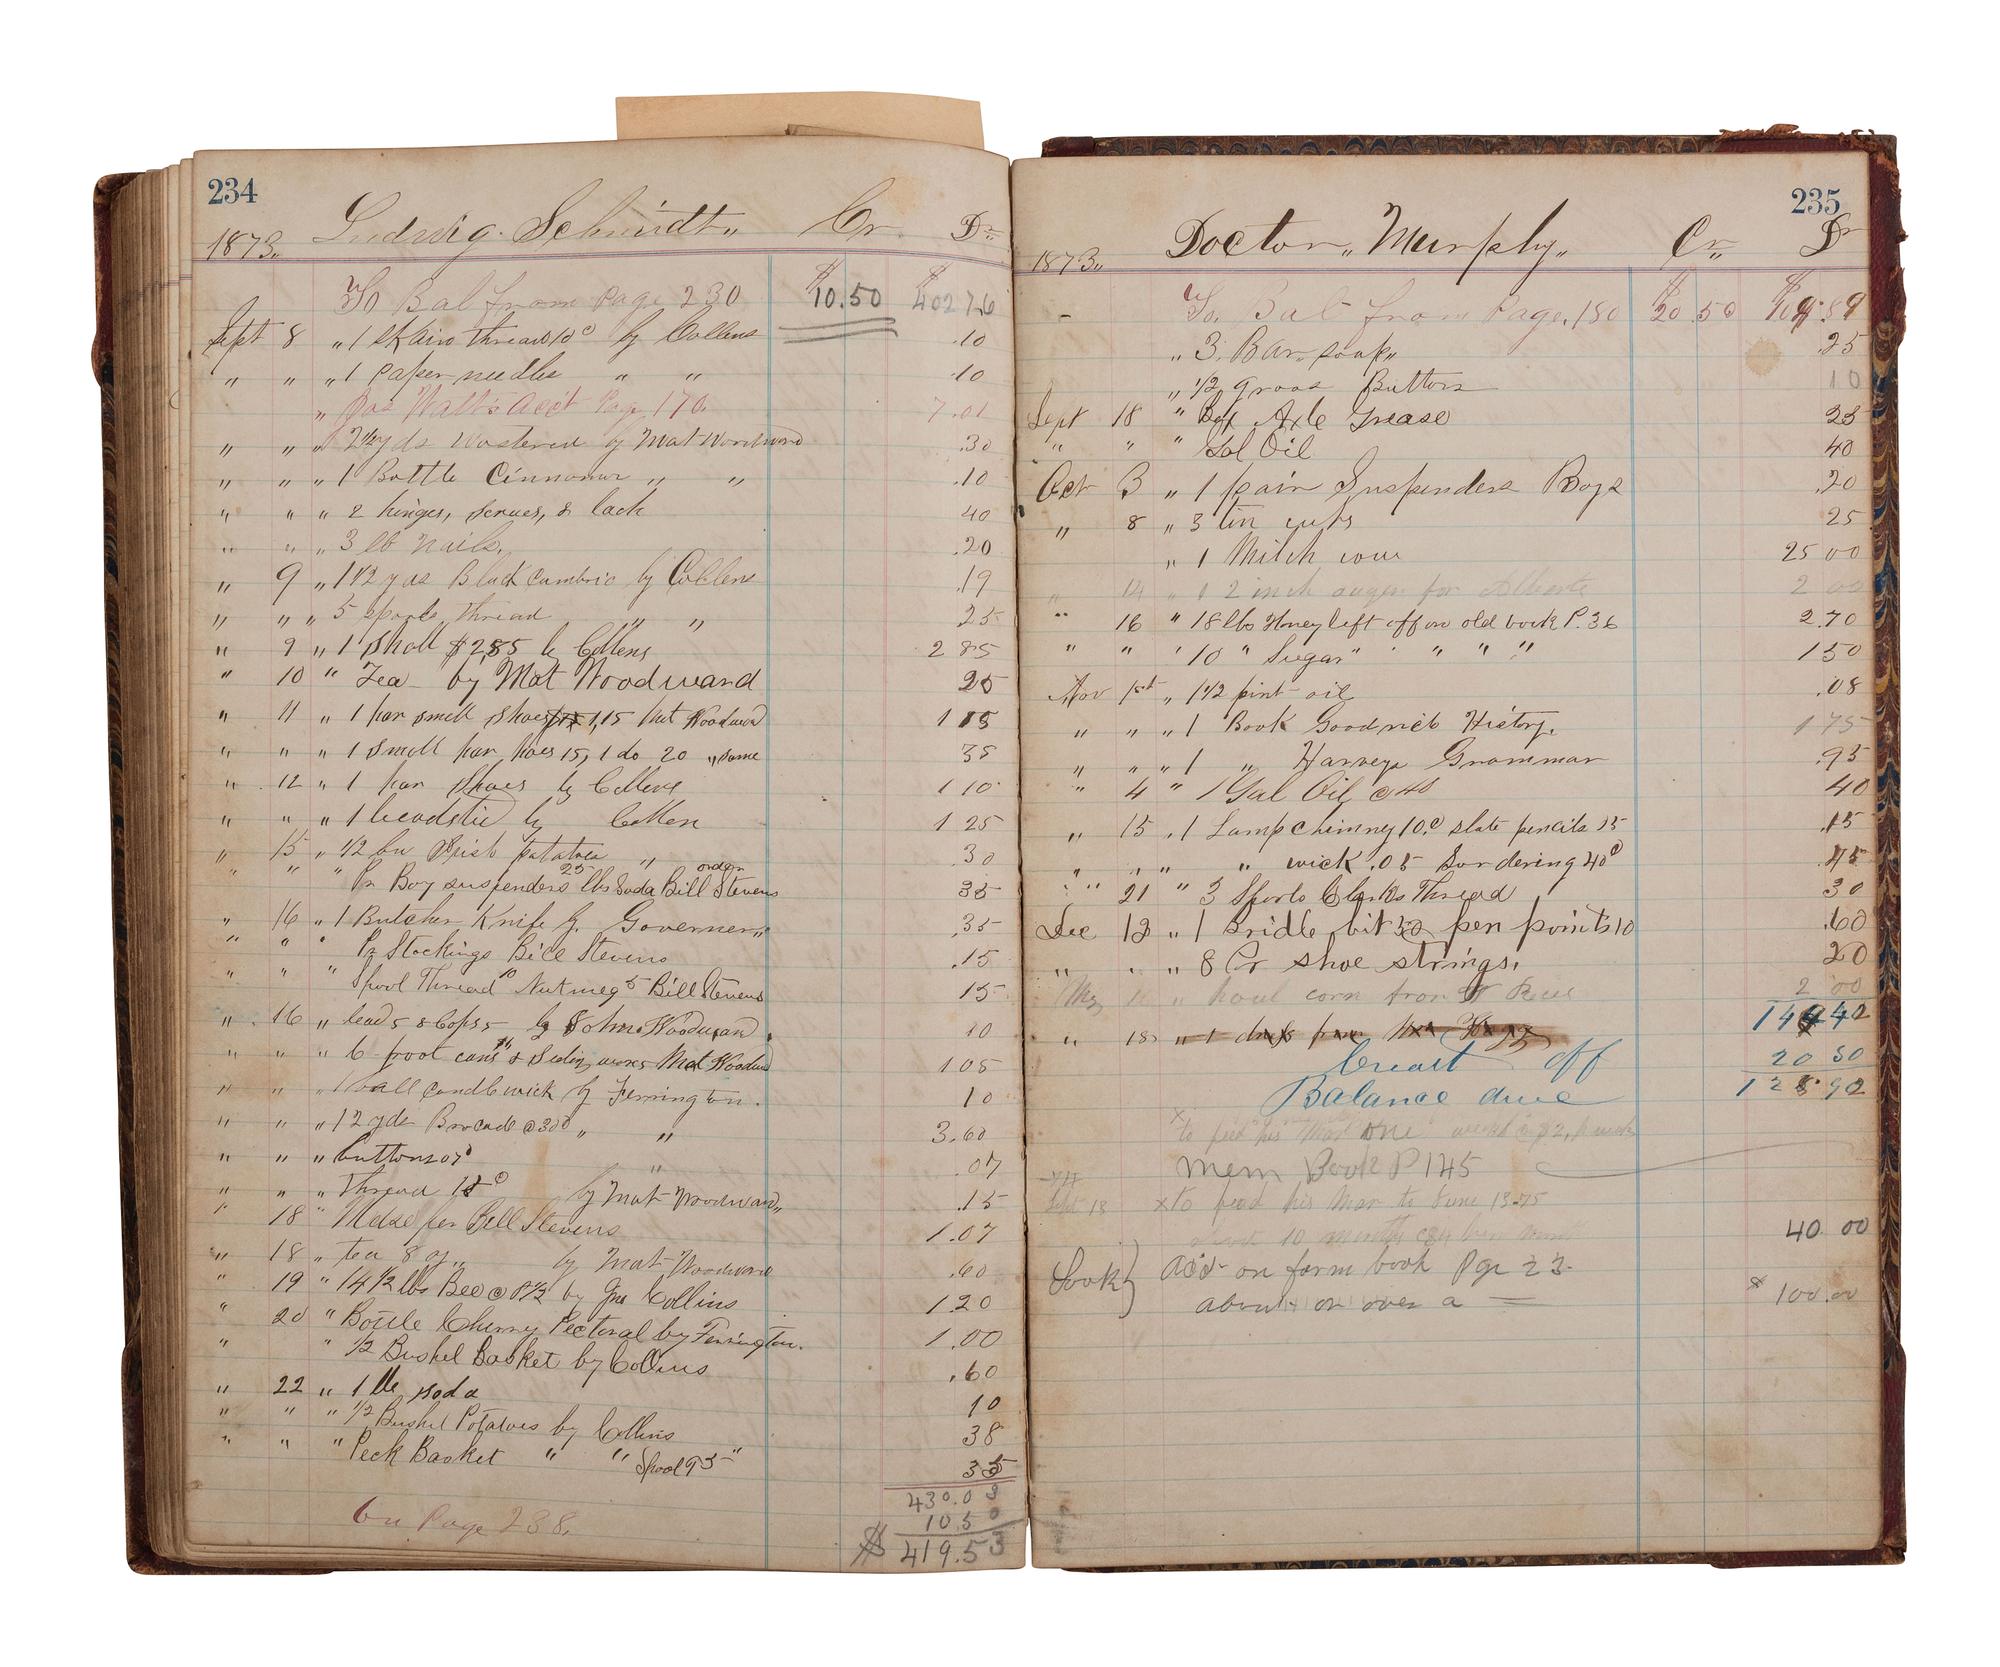 234
Ludwig. Schmidt„ Cr. Dr
1873„
To Bal from Page 230 $ 10.50 $ 402 76
Sept 8 „ 1 Skain thread 10c by Collens .10
„ „ „ 1 paper needles „ „ .10
„ Jas Walt's acct Page 170. 7.01
„ „ „ 2 1/2 yds by Mat Woodward .30
„ „ „ 1 Bottle Cinnamon „ „ .10
„ „ „ 2 hinges, screws, & lock 40
„ „ „ 3 lb Nails. .20
„ 9 „ 1 1/2 yds Black Cambric by Collens .19
„ „ „ 5 spools thread „ „ 25
„ 9 „ 1 Shall $2,85 by Collens 2 85
" 10 " Tea by Mat Woodward 25
" 11 „ 1 par small Shoes 1,15 Mat Woodward 1 15
„ „ „ 1 Small par hoes 15, 1 do 20 „ same 35
„ 12 „ 1 par Shoes by Collens 1 10
„ „ „ 1 beadstid by Collen 1 25
„ 15 „ 1/2 bu Irish potatoes „ .30
„ " " Pr Boy suspenders 25 lbs Soda Bill Stevens order 35
„ 16 „ 1 Butcher Knife by Governer„ .35
„ " " Pr Stockings Bill Stevens .15
" " " Spool Thread 10 Nutmeg 5 Bill Stevens 15
„ 16 „ by John Woodward. 10
„ „ „ 6 froot cans & Mat Woodward 1 05
„ „ „ 1 ball candlewick by Ferrington. 10
„ „ „ 12 yds Brocade @ 30c „ „ 3.60
„ „ „ buttons 07c „ .07
„ „ „ Thread 15c by Mat Woodward„ .15
" 18 " Mdse per Bill Stevens 1.07
„ 18 „ tea 8 oz„ by Mat Woodward .60
" 19 " 14 1/2 lbs Bee @ 8 1/2 by Jno Collins 1 20
" 20 " Bottle Cherry Pectoral by Ferrington. 1.00
" " 1/2 Bushel Basket by Collins .60
„ 22 „ 1 lb soda 10
" " " 1/2 Bushel Potatoes by Collins 38
" " " Peck Basket " " Spool T 5" 35
430.03
10.50
On Page 238.
$ 419.53
235
Doctor„ Murphy„ Cr„ Dr
1873„
To. Bal from Page. 180 $ 20 50
„ 3. Bar„ soap„ .25
„ 1/2 gross Buttons 10
Sept 18 " Box Axle Grease 25
" " " Gal Oil 40
Oct 3 „ 1 pair Suspenders Boys .20
„ 8 „ 3 tin cups 25
„ 1 Milch cow 25 00
„ 14 „ 1 2 inch auger for 2 00
" 16 " 18 lbs Honey left off on old book P. 36 2.70
" " ' 10 " Sugar " ' " " " 1 50
Nov 1st „ 1 1/2 pint oil .08
„ „ „ 1 Book Goodrich History. 1 75
„ „ „ 1 „ Harveys Grammar .95
" 4 " 1 Gal Oil @ 40 40
„ 15 „ 1 Lamp chimney 10.c slate pencils 05 .15
„ „ „ „ wick .05 Sordering 40c .45
" " 21 " 3 Spools Clarks Thread 30
Dec 13 „ 1 Bridle bit 50 pen points 10 .60
„ „ „ 8 Pr shoe strings. 20
„ haul corn from 2 00
„ 18 „ 1 149 42
Creait off 20 50
Balance due 128 92
mem Book P 145
Sept 18 x to his Mar to June 13-75
10 months 40.00
Look } add on farm book Pge 23
about on over a = x 100.00